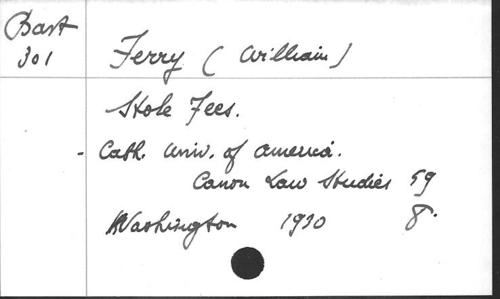 Bast
301
Ferry (William)
Stole Fees.
- Cath. Univ. of America.
Canon Law Studies 59
Washington 1930 8°.